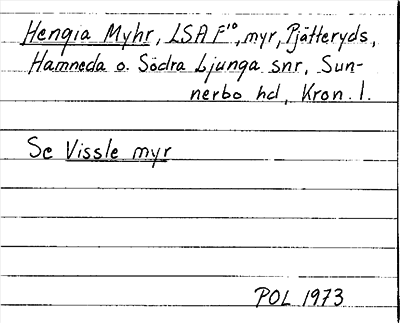 Hengia Myhr, LSA F¹⁰, myr, Pjätteryds,
Hamneda o. Södra Ljunga snr, Sun-
nerbo hd, Kron. l.
Se Vissle myr
POL 1973